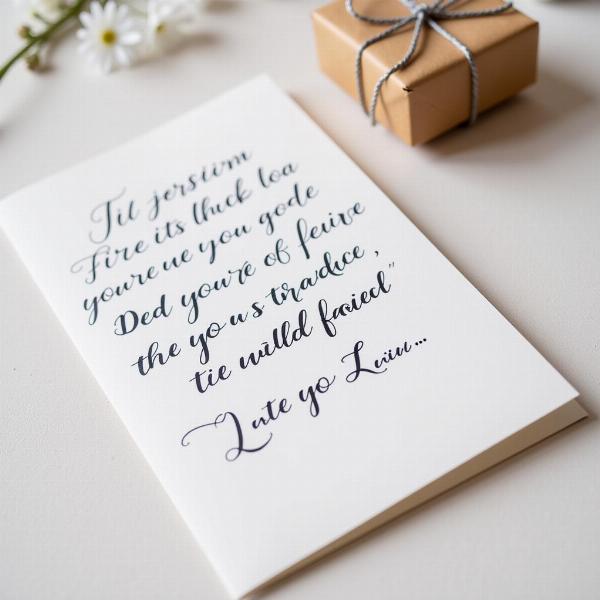 Til jersiim
Fire its thuck loa
youre ue you gode
Ded you're of feuive
the yo us tradice,
tie willd faried"
Lute yo Luiu...